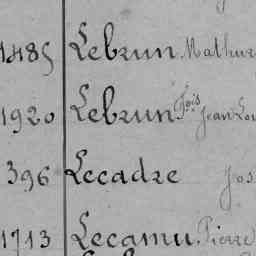 1485 Lebrun Mathur
1920 Lebrun Fois Jean Lou
396 Lecadre Jos
1713 Lecamu Pierre